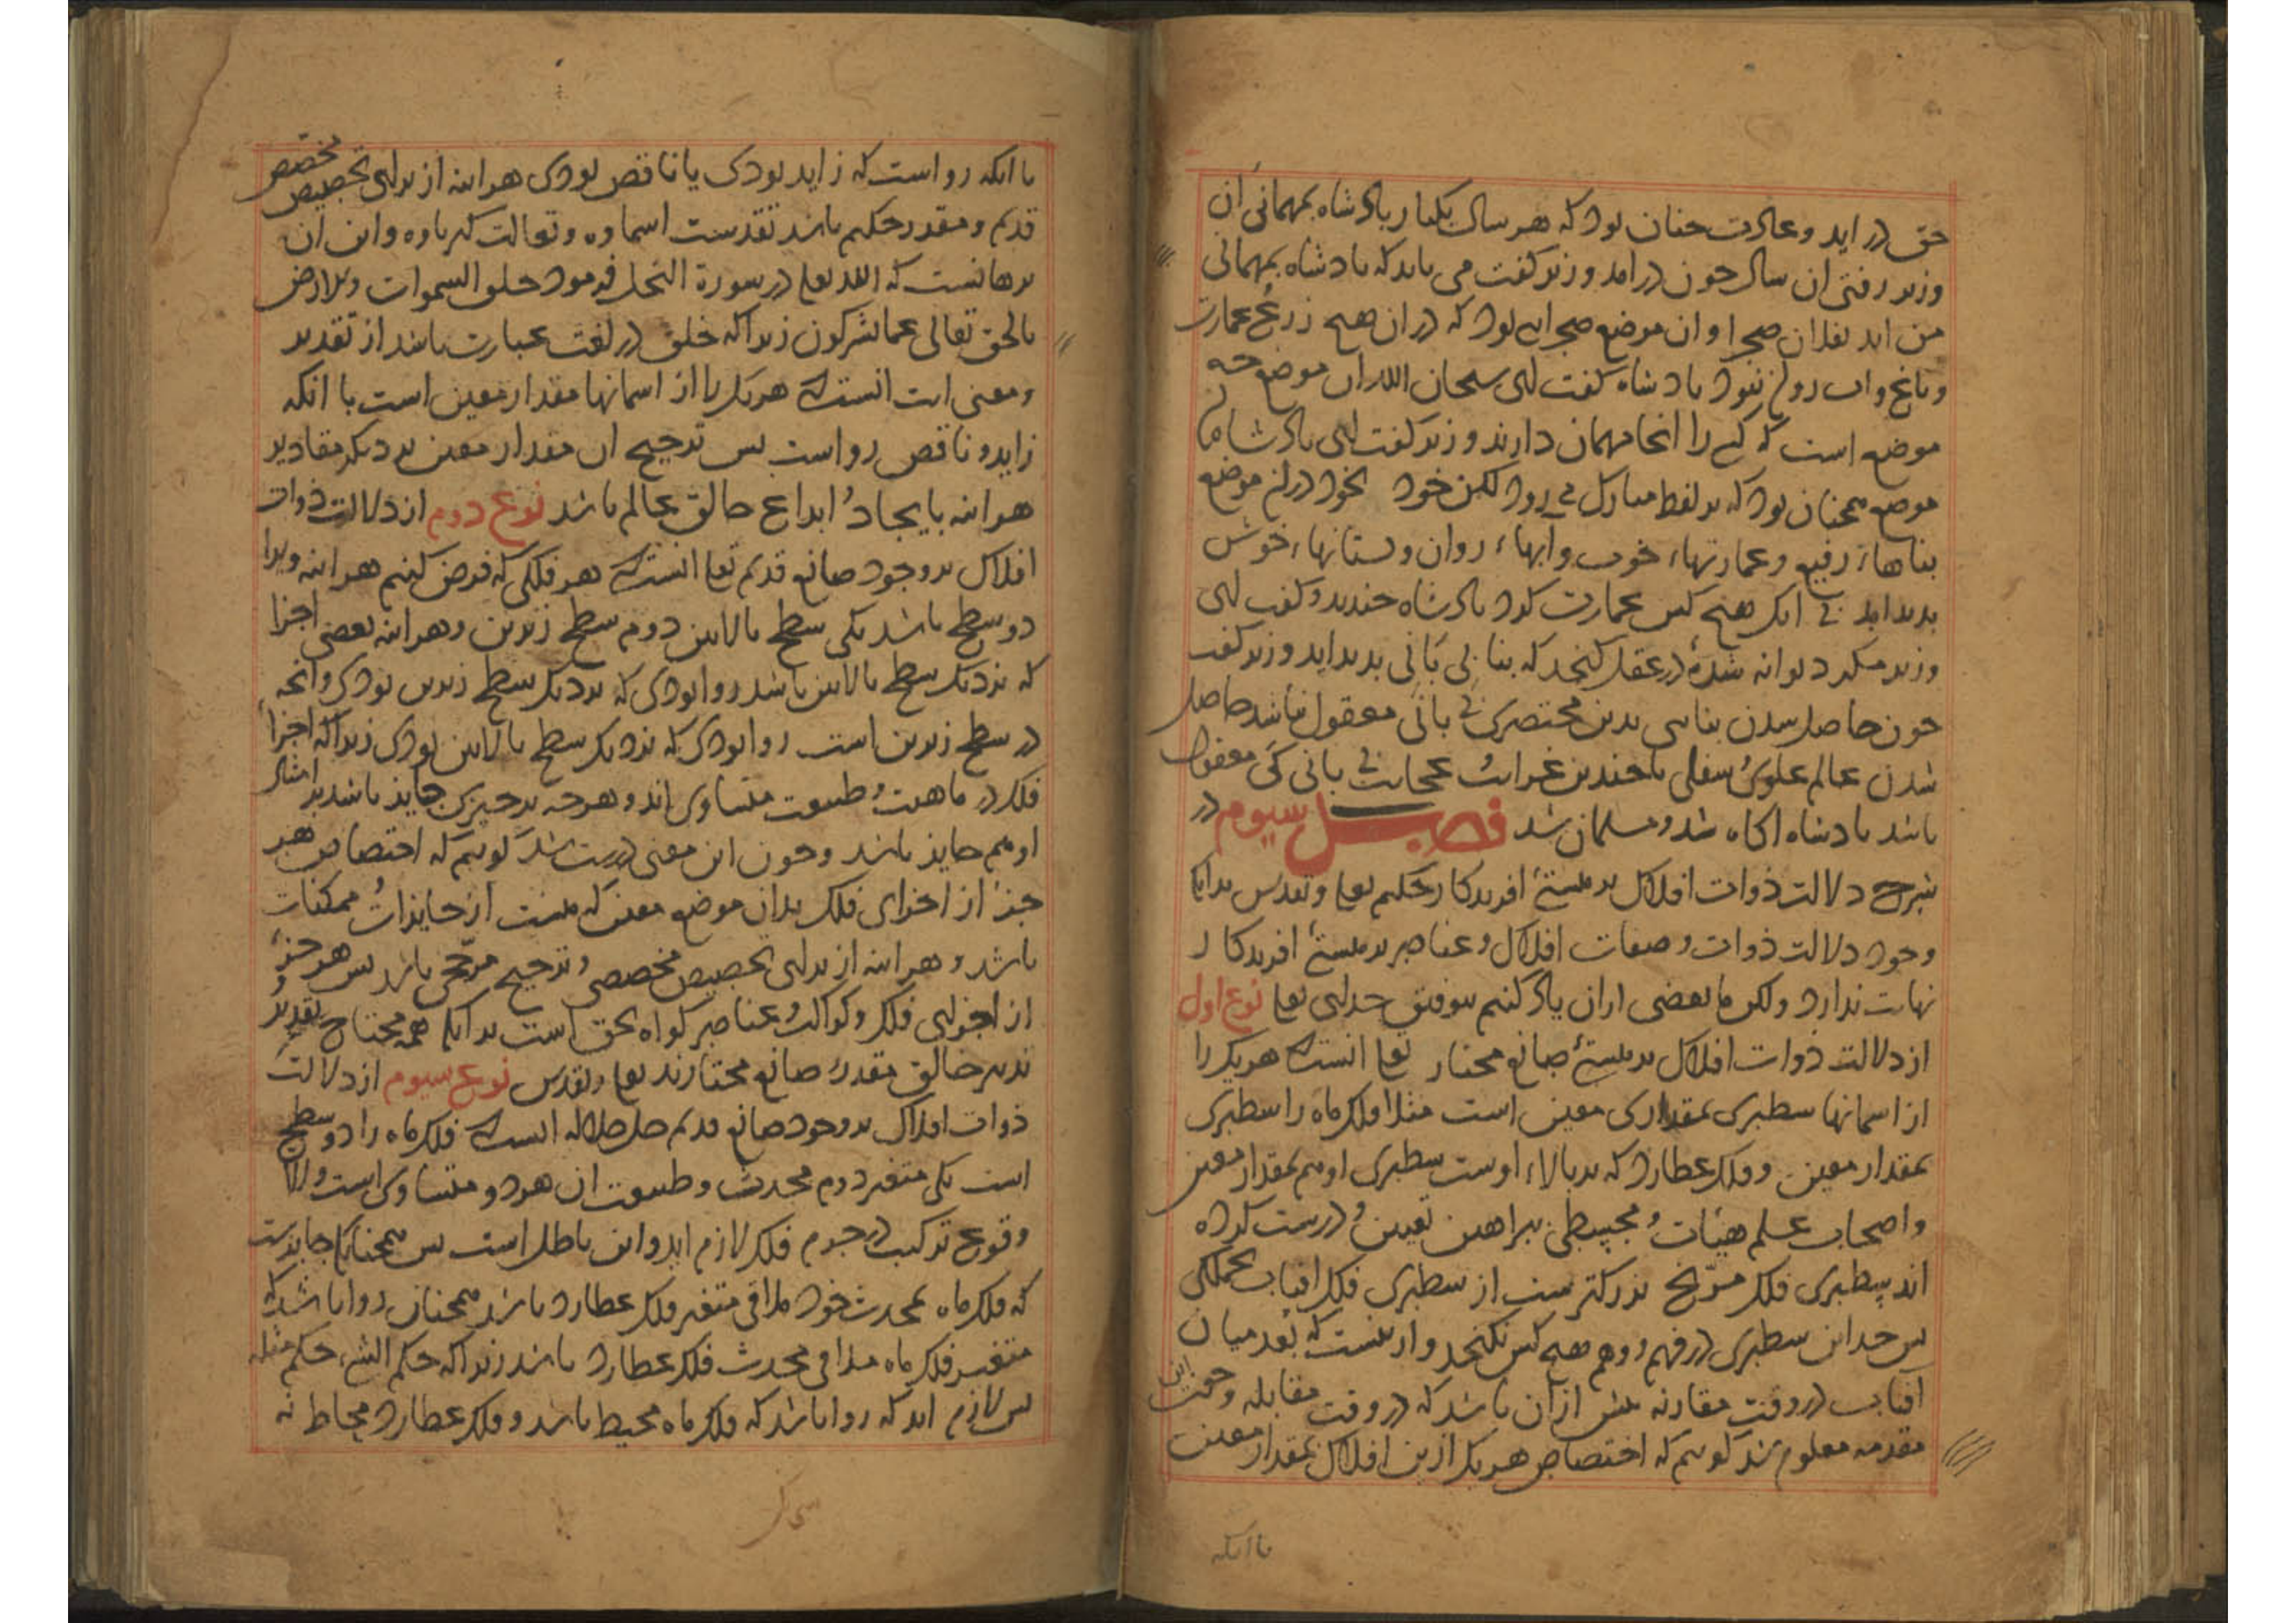 حق در اید و عادت چنان بود که هر سال یکبار پادشاه بمهمانی ان
وزیر رفتی ان سال چون در امد وزیر گفت می باید که پادشاه بمهمانی
من اید بفلان صحرا و ان موضع صحرایی بود که در ان هیچ زرع و عمارت
و باغ و اب روان نبود پادشاه گفت ای سبحان الله ان موضع چه
موضع است که کسی را انجا مهمان دارند وزیر گفت ای پادشاه ان
موضع همچنان بود که بر لفظ مبارک می رود لکن خود بخود در ان موضع
بناهاء رفیع و عمارتهاء خوب و ابهاء روان و بستانهاء خوش
پدید امد بی انک هیچ کس عمارت کرد پادشاه خندید و گفت ای
وزیر مگر دیوانه شدهٔ در عقل گنجد که بنا بی بانی پدید اید وزیر گفت
چون حاصل شدن بنایی بدین مختصری بی بانی معقول نباشد حاصل
شدن عالم علوی و سفلی با چندین غرایب و عجایب بی بانی کی معقول
باشد پادشاه اگاه شد و مسلمان شد فصل سیوم در
شرح دلالت ذوات افلاک بر هستیٔ افریدکار حکیم تعا و تقدس بدانکا
وجود دلالت ذوات و صفات افلاک و عناصر بر هستیٔ افریدکار
نهایت ندارد ولکن ما بعضی از ان یاد کنیم بتوفیق خدای تعا نوع اول
از دلالت ذوات افلاک بر هستیٔ صانع مختار تعا انستکه هر یک را
از اسمانها سطبری بمقداری معین است مثلا فلک ماه را سطبری
بمقدار معین و فلک عطارد که بر بالاء اوست سطبری او هم بمقدار معین
و اصحاب علم هیئات و مجسطی ببراهین تعیین و درست کرده
اند سطبری فلک مریخ بزرکترست از سطبری فلک افتاب بجملکی
پس حد این سطبری در فهم و وهم هیچ کس نکنجد و از بهر انست که بعد میان
افتاب در وقت مقارنه بیش از ان باشد که در وقت مقابله و چون این
مقدمه معلوم شد کوییم که اختصاص هر یک ازین افلاک بمقدار معین
با انکه
با انکه رواست که زاید بودی یا ناقص بودی هراینه از برای تخصیص مخصص
قدیم و مقدر حکیم باشد تقدست اسماوه و تعالت کبریاوه و این ان
برهانست که الله تعا در سورة النحل فرمود خلق السموات والارض
بالحق تعالی عما یشرکون زیرا که خلق در لغت عبارت باشد از تقدیر
و معنی ایت انستکه هر یک را از اسمانها مقدار معین است با انکه
زاید و ناقص رواست پس ترجیح ان مقدار معین بر دیکر مقادیر
هراینه بایجاد و ابداع خالق عالم باشد نوع دوم از دلالت ذوات
افلاک بر وجود صانع قدیم تعا انستکه هر فلکی که فرض کنیم هراینه ویرا
دو سطح باشد یکی سطح بالایین دوم سطح زیرین و هراینه بعضی اجزا
که نزدیک سطح بالایین باشد روا بودی که نزدیک سطح زیرین بودی و انچه
در سطح زیرین است روا بودی که نزدیک سطح بالایین بودی زیرا که اجزاء
فلک در ماهیت و طبیعت متساوی اند و هر چه بر چیزی جایز باشد بر امثال
او هم جایز باشد و چون این معنی درست شد کوییم که اختصاص هر
جزء از اجزای فلک بدان موضع معین که هست از جایزات و ممکنات
باشد و هراینه از برای تخصیص مخصصی و ترجیح مرجحی باشد پس هر جزء
از اجزای فلک و کواکب و عناصر کواه بحق است بدانکه همه محتاج بتقدیر و
تدبیر خالق مقدر و صانع مختارند تعا و تقدس نوع سیوم از دلالت
ذوات افلاک بر وجود صانع قدیم جل جلاله انستکه فلک ماه را دو سطح
است یکی متقعر دوم محدث و طبیعت ان هر دو متساوی است والا
وقوع ترکیب در جرم فلک لازم اید و این باطل است پس همچنانکه جایزست
که فلک ماه بمحدث خود ملاقی متقعر فلک عطارد باشد همچنان روا باشد که
متقعر فلک ماه ملاقی محدث فلک عطارد باشد زیرا که حکم الشیء حکم مثله
پس لازم اید که روا باشد که فلک ماه محیط باشد و فلک عطارد محاط نه